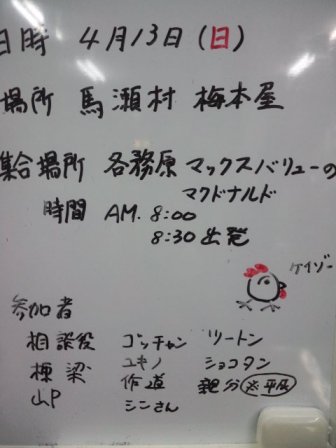 日時 4月13日(日)
場所 馬瀬村 梅本屋
集合場所 各務原 マックスバリューの
マクドナルド
時間 AM. 8:00
8:30 出発
ケイゾー
参加者
相談役 ゴッチャン ツートン
棟梁 ユキノ ショコタン
山P 作道 親分
シンさん